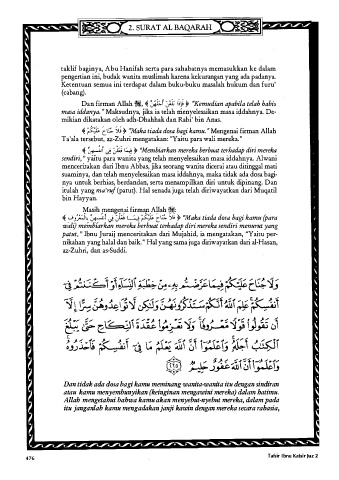 2. SURAT AL BAQARAH
taklif baginya, Abu Hanifah serta para sahabatnya memasukkan ke dalam
pengertian ini, budak wanita muslimah karena kekurangan yang ada padanya.
Ketentuan semua ini terdapat dalam buku-buku masalah hukum dan furu'
(cabang).
Dan firman Allah ﷻ, ﴿ فَإِذَا بَلَغْنَ أَجَلَهُنَّ ﴾ "Kemudian apabila telah habis
masa iddanya." Maksudnya, jika ia telah menyelesaikan masa iddahnya. De-
mikian dikatakan oleh adh-Dhahhak dan Rabi' bin Anas.
﴿ فَلَا جُنَاحَ عَلَيْكُمْ ﴾ "Maka tiada dosa bagi kamu." Mengenai firman Allah
Ta'ala tersebut, az-Zuhri mengatakan: "Yaitu para wali mereka."
﴿ فِيمَا فَعَلْنَ فِي أَنفُسِهِنَّ ﴾ "Membiarkan mereka berbuat terhadap diri mereka
sendiri," yaitu para wanita yang telah menyelesaikan masa iddahnya. Alwani
menceritakan dari Ibnu Abbas, jika seorang wanita dicerai atau ditinggal mati
suaminya, dan telah menyelesaikan masa iddahnya, maka tidak ada dosa bagi-
nya untuk berhias, berdandan, serta menampilkan diri untuk dipinang. Dan
itulah yang ma'ruf (patut). Hal senada juga telah diriwayatkan dari Muqatil
bin Hayyan.
Masih mengenai firman Allah ﷻ:
﴿ فَلَا جُنَاحَ عَلَيْكُمْ فِيمَا فَعَلْنَ فِي أَنفُسِهِنَّ بِالْمَعْرُوفِ ﴾ "Maka tiada dosa bagi kamu (para
wali) membiarkan mereka berbuat terhadap diri mereka sendiri menurut yang
patut," Ibnu Juraij menceritakan dari Mujahid, ia mengatakan, "Yaitu per-
nikahan yang halal dan baik." Hal yang sama juga diriwayatkan dari al-Hasan,
az-Zuhri, dan as-Suddi.
وَلَا جُنَاحَ عَلَيْكُمْ فِيمَا عَرَّضْتُم بِهِ مِنْ خِطْبَةِ النِّسَاءِ أَوْ أَكْنَنتُمْ فِي
أَنفُسِكُمْ عَلِمَ اللَّهُ أَنَّكُمْ سَتَذْكُرُونَهُنَّ وَلَٰكِن لَّا تُوَاعِدُوهُنَّ سِرًّا إِلَّا
أَن تَقُولُوا قَوْلًا مَّعْرُوفًا وَلَا تَعْزِمُوا عُقْدَةَ النِّكَاحِ حَتَّىٰ يَبْلُغَ
الْكِتَابُ أَجَلَهُ وَاعْلَمُوا أَنَّ اللَّهَ يَعْلَمُ مَا فِي أَنفُسِكُمْ فَاحْذَرُوهُ
وَاعْلَمُوا أَنَّ اللَّهَ غَفُورٌ حَلِيمٌ ٢٣٥
Dan tidak ada dosa bagi kamu meminang wanita-wanita itu dengan sindiran
atau kamu menyembunyikan (keinginan mengawini mereka) dalam batinmu.
Allah mengetahui bahwa kamu akan menyebut-nyebut mereka, dalam pada
itu janganlah kamu mengadakan janji kawin dengan mereka secara rahasia,
476
Tafsir Ibnu Katsir Juz 2